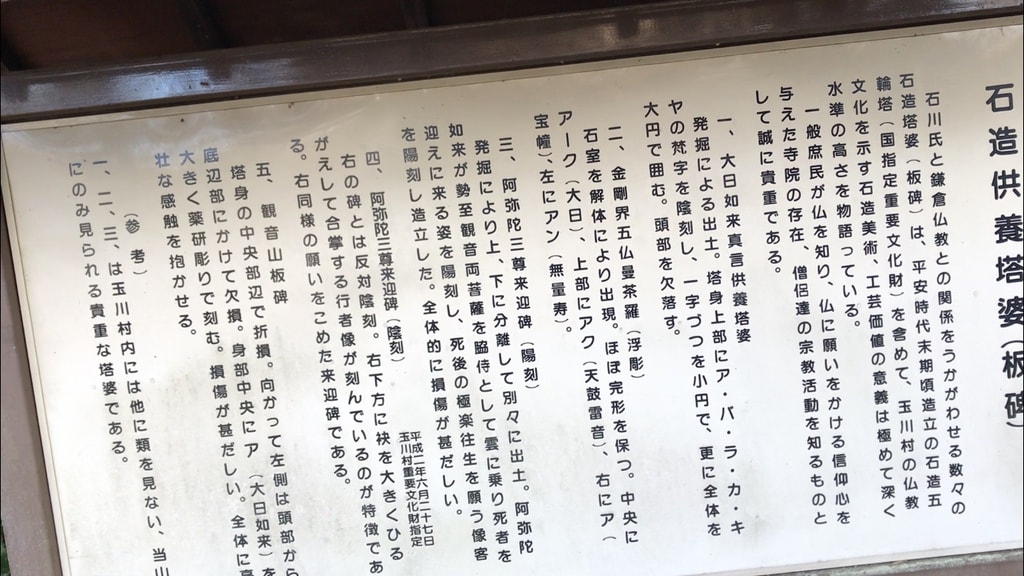 石造供養塔婆(板碑)
石川氏と鎌倉仏教との関係をうかがわせる数々の
石造塔婆(板碑)は、平安時代末期頃造立の石造五
輪塔(国指定重要文化財)を含めて、玉川村の仏教
文化を示す石造美術、工芸価値の意義は極めて深く
水準の高さを物語っている。
一般庶民が仏を知り、仏に願いをかける信仰心を
与えた寺院の存在、僧侶達の宗教活動を知るものと
して誠に貴重である。
一、大日如来真言供養塔婆
発掘による出土。塔身上部にア・バ・ラ・カ・キ
ヤの梵字を陰刻し、一字づつを小円で、更に全体を
大円で囲む。頭部を欠落す。
二、金剛界五仏曼荼羅(浮彫)
石室を解体により出現。ほぼ完形を保つ。中央に
アーク(大日)、上部にアク(天鼓雷音)、右にア(
宝幢)、左にアン(無量寿)。
三、阿弥陀三尊来迎碑(陽刻)
発掘により上、下に分離して別々に出土。阿弥陀
如来が勢至観音両菩薩を脇侍として雲に乗り死者を
迎えに来る姿を陽刻し、死後の極楽往生を願う像容
を陽刻し造立した。全体的に損傷が甚だしい。
平成二年六月二十七日
玉川村重要文化財指定
四、阿弥陀三尊来迎碑(陰刻)
右の碑とは反対陰刻。右下方に袂を大きくひる
がえして合掌する行者像が刻んでいるのが特徴であ
る。右同様の願いをこめた来迎碑である。
五、観音山板碑
塔身の中央部辺で折損。向かって左側は頭部から
底辺部にかけて欠損。身部中央にア(大日如来)を
大きく薬研彫りで刻む。損傷が甚だしい。全体に豪
壮な感触を抱かせる。
(参考)
一、二、三、は玉川村内には他に類を見ない、当山
にのみ見られる貴重な塔婆である。